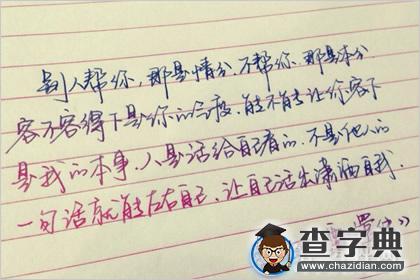 别人帮你，那是情分，不帮你，那是本分.
容不容得下是你的气度，能不能让你容下
是我的本事，人是活给自己看的，不是他人的
一句话就能左右自己，让自己活出潇洒自我.
查字典
www.chazidian.com